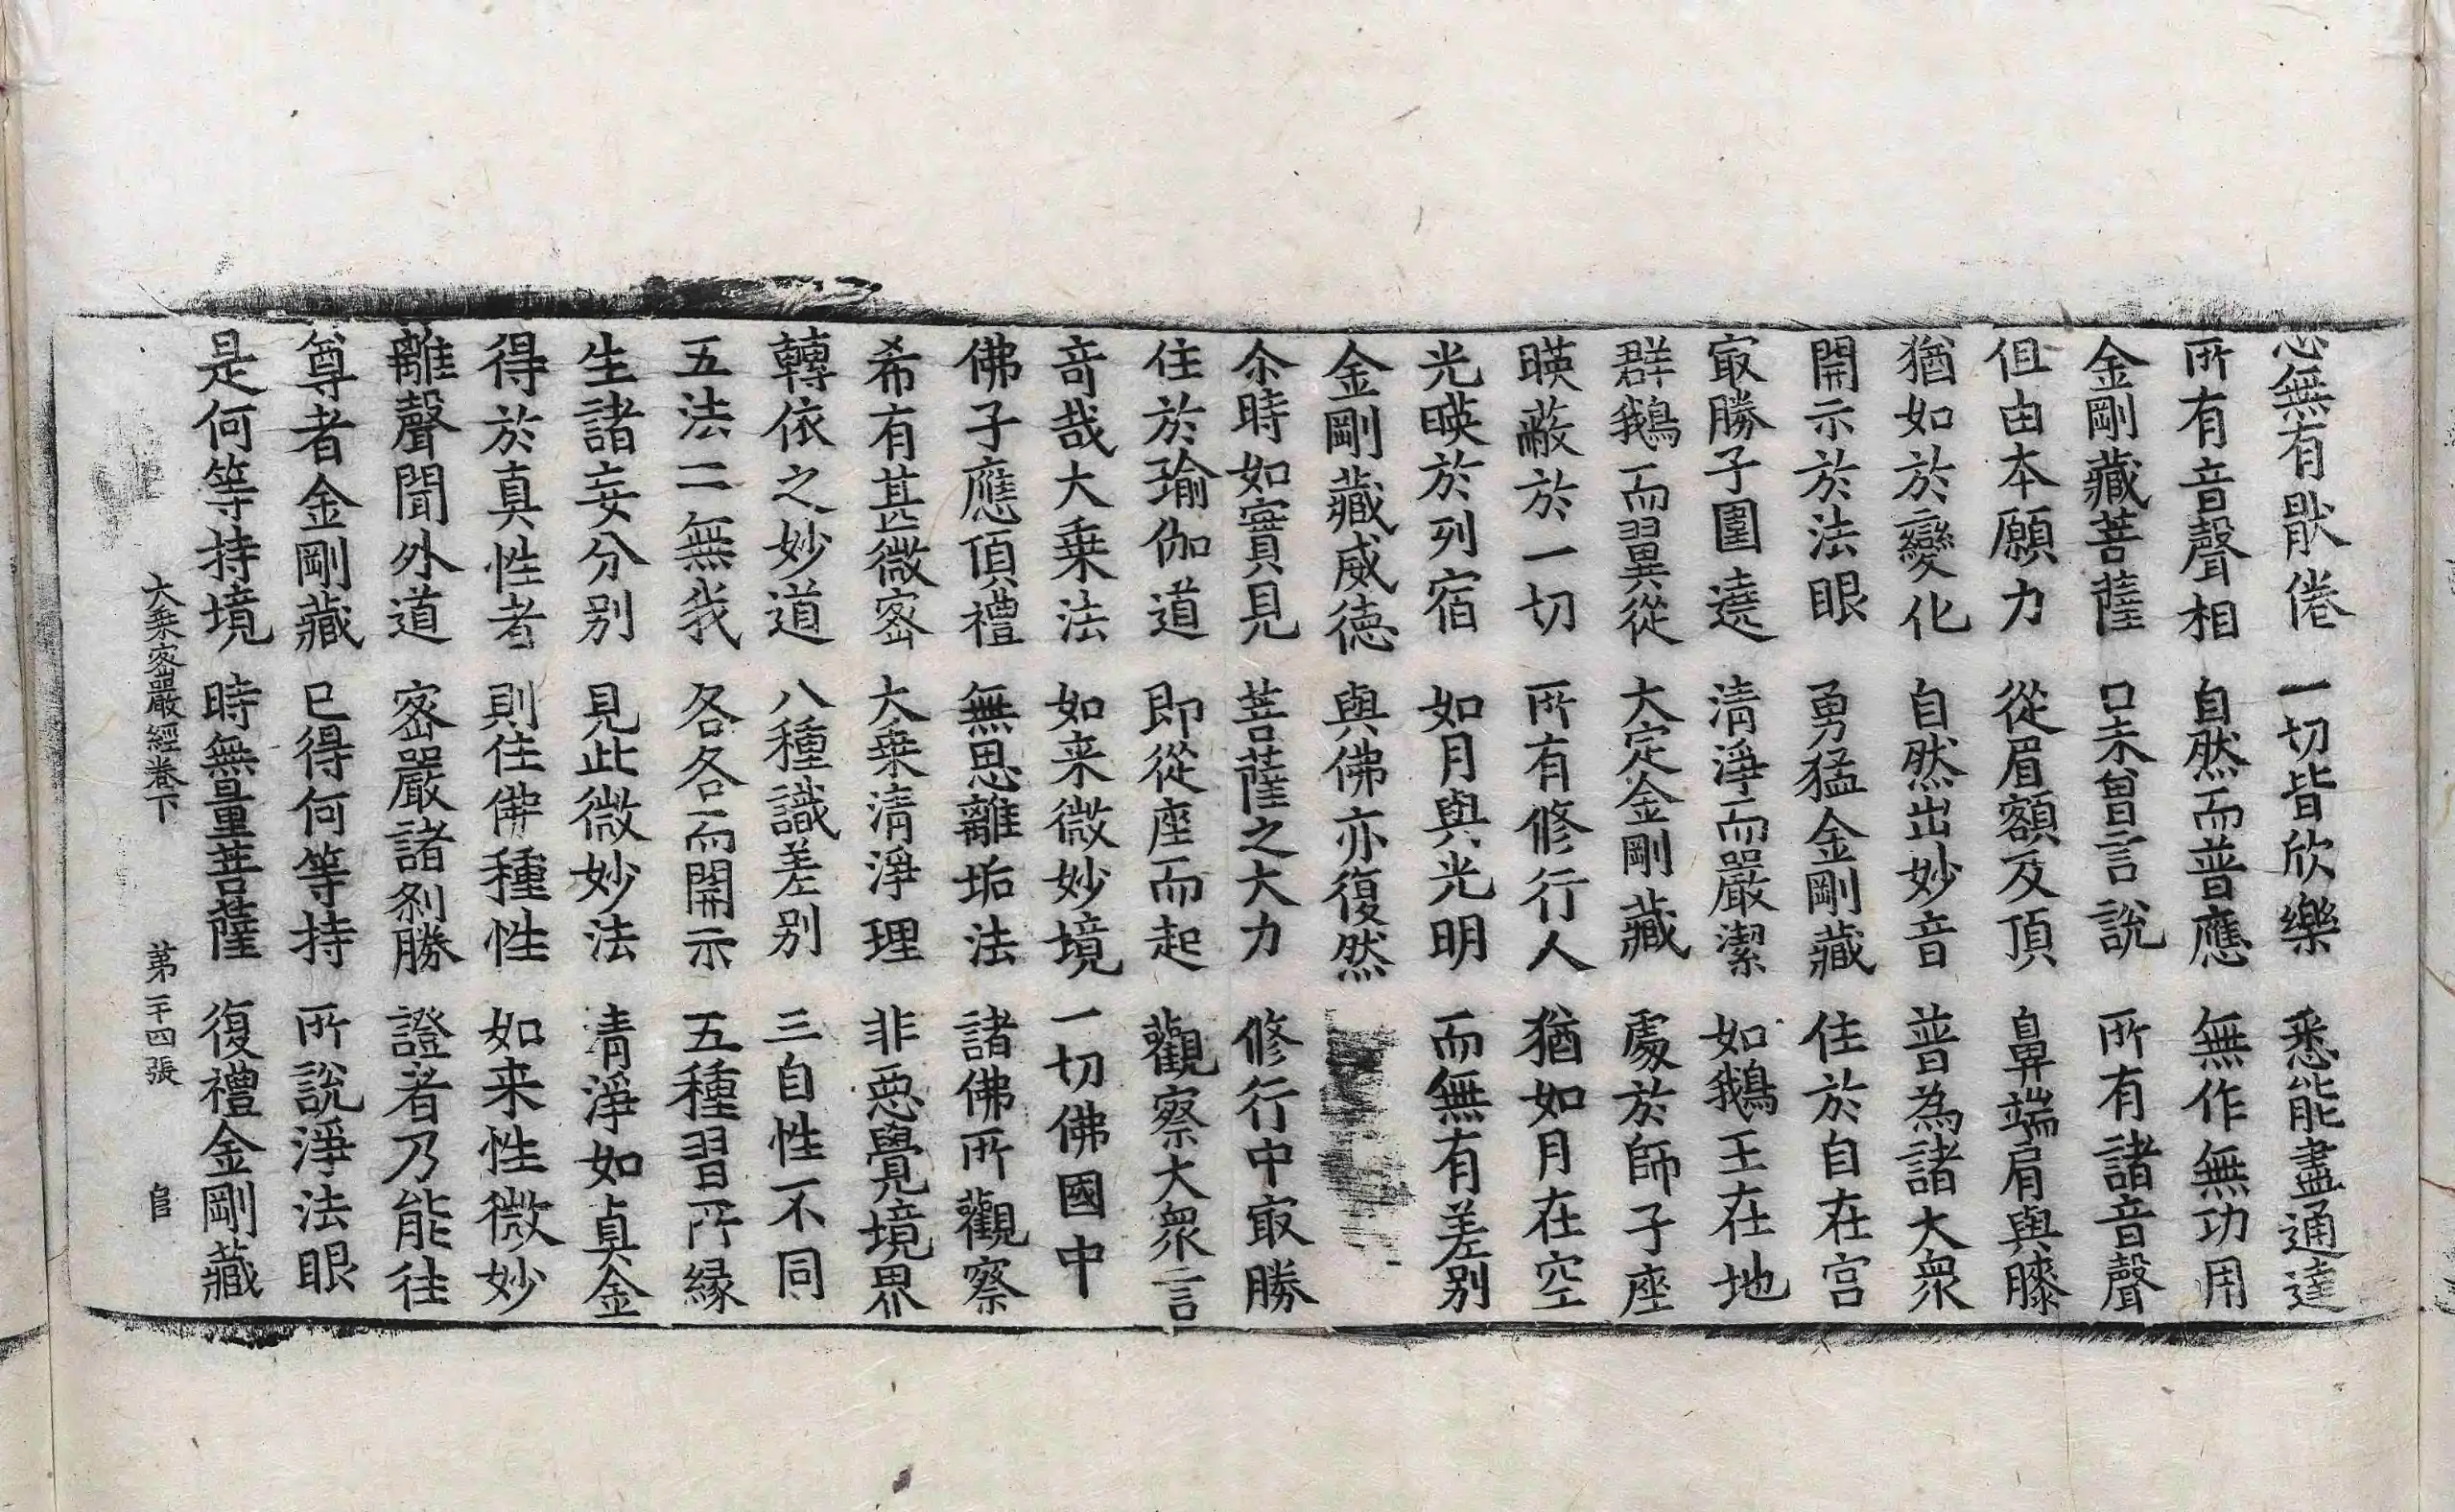 無有猒倦 一切皆欣樂 悉能盡通達
所有音聲相 自然而普應 無作無功用
金剛藏菩薩 口未曾言說 所有諸音聲
但由本願力 從眉額及頂 鼻端肩與膝
猶如於變化 自然出妙音 普為諸大衆
開示於法眼 勇猛金剛藏 住於自在宮
㝡勝子圍遶 清淨而嚴潔 如鵝王在地
群鵝而翼從 大定金剛藏 處於師子座
暎蔽於一切 所有修行人 猶如月在空
光暎於列宿 如月與光明 而無有差別
金剛藏威德 與佛亦復然
尒時如實見 菩薩之大力 修行中㝡勝
住於瑜伽道 即從座而起 觀察大衆言
奇哉大乗法 如来微妙境 一切佛國中
佛子應頂禮 無思離垢法 諸佛所觀察
希有甚微宻 大乗清淨理 非惡覺境界
轉依之妙道 八種識差别 三自性不同
五法二無我 各各而開示 五種習所縁
生諸妄分别 見此微妙法 清淨如真金
得於真性者 則住佛種性 如来性微妙
離聲聞外道 宻嚴諸刹勝 證者乃能往
尊者金剛藏 已得何等持 所說淨法眼
是何等持境 時無量菩薩 復禮金剛藏
大乗宻嚴經卷下 第二十四張